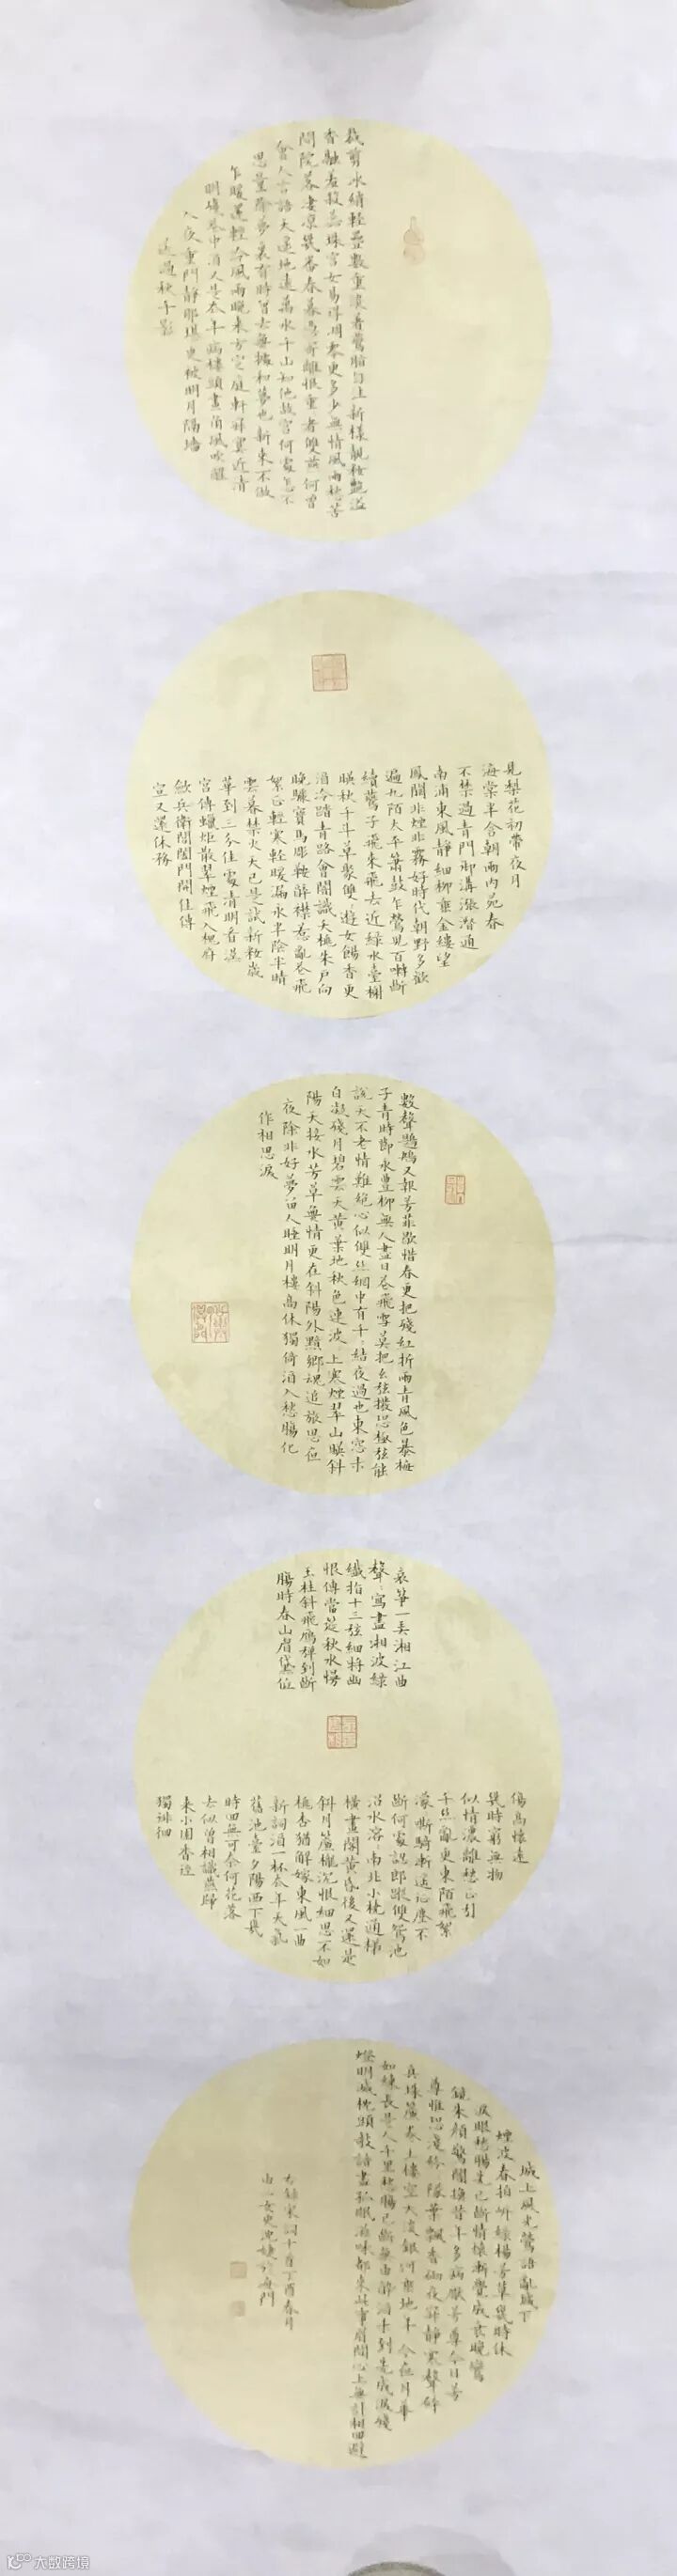 裁剪冰綃輕疊數重淡著鶯脂勻注新樣靚妝艷溢
香融羞殺蕊珠宮女易得凋零更多少無情風雨愁苦
問院落淒涼幾番春暮憑寄離恨重者雙燕何曾
會人言語天遙地遠萬水千山知他故宮何處怎不
思量除夢裏有時曾去無據和夢也新來不做
乍暖還輕冷風雨晚來方定庭軒寂寞近清
明殘花中酒又是去年病樓頭畫角風吹醒
入夜重門靜那堪更被明月隔墻
送過秋千影
見梨花初帶夜月
海棠半含朝雨內苑春
不禁過青門御溝漲潛通
南浦東風靜細柳垂金縷望
鳳闕非煙非霧好時代朝野多歡
遍九陌太平簫鼓乍鶯兒百囀斷
續鶯子飛來飛去近綠水臺榭
映秋千斗草聚雙遊女餳香更
酒冷踏青路會闇識夭桃朱戶向
晚驟寶馬雕鞍醉襟惹亂花飛
絮正輕寒輕暖漏永半陰半晴
雲暮禁火天已是試新妝歲
華到三分佳處清明看漢
宮傳蠟炬散翠煙飛入槐府
斂兵衛閶闔門開住傳
宣又還休務
數聲鶗鴂又報芳菲歇惜春更把殘紅折雨青風色暴梅
子青時節永豐柳無人盡日花飛雪莫把幺弦撥怨極弦能
說天不老情難絕心似雙絲網中有千々結夜過也東窗未
白凝殘月碧雲天黃葉地秋色連波々上寒煙翠山映斜
陽天接水芳草無情更在斜陽外黯鄉魂追旅思夜
夜除非好夢留人睡明月樓高休獨倚酒入愁腸化
作相思淚
哀箏一弄湘江曲
聲々寫盡湘波綠
纖指十三弦細將幽
恨傳當筵秋水慢
玉柱斜飛雁彈到斷
腸時春山眉黛低
傷高懷遠
幾時窮無物
似情濃離愁正引
千絲亂更東陌飛絮
濛々嘶騎漸遙征塵不
斷何處認郎蹤雙鴛池
沼水溶々南北小橈通梯
橫畫閣黃昏後又還是
斜月簾櫳沉恨細思不如
桃杏猶解嫁東風一曲
新詞酒一杯去年天氣
舊池臺夕陽西下幾
時回無可奈何花落
去似曾相識燕歸
來小園香徑
獨徘徊
城上風光鶯語亂城下
煙波春拍岸綠楊芳草幾時休
淚眼愁腸先已斷情懷漸覺成衰晚鸞
鏡朱顏驚闇換昔年多病厭芳尊今日芳
尊惟恐淺紛々墜葉飄香砌夜寂靜寒聲碎
真珠簾卷玉樓空天淡銀河垂地年々今夜月華
如練長是人千里愁腸已斷無由醉酒未到先成淚殘
燈明滅枕頭敧諳盡孤眠滋味都來此事眉間心上無計相迴避
右錄宋詞十首丁酉春月
大数跨境